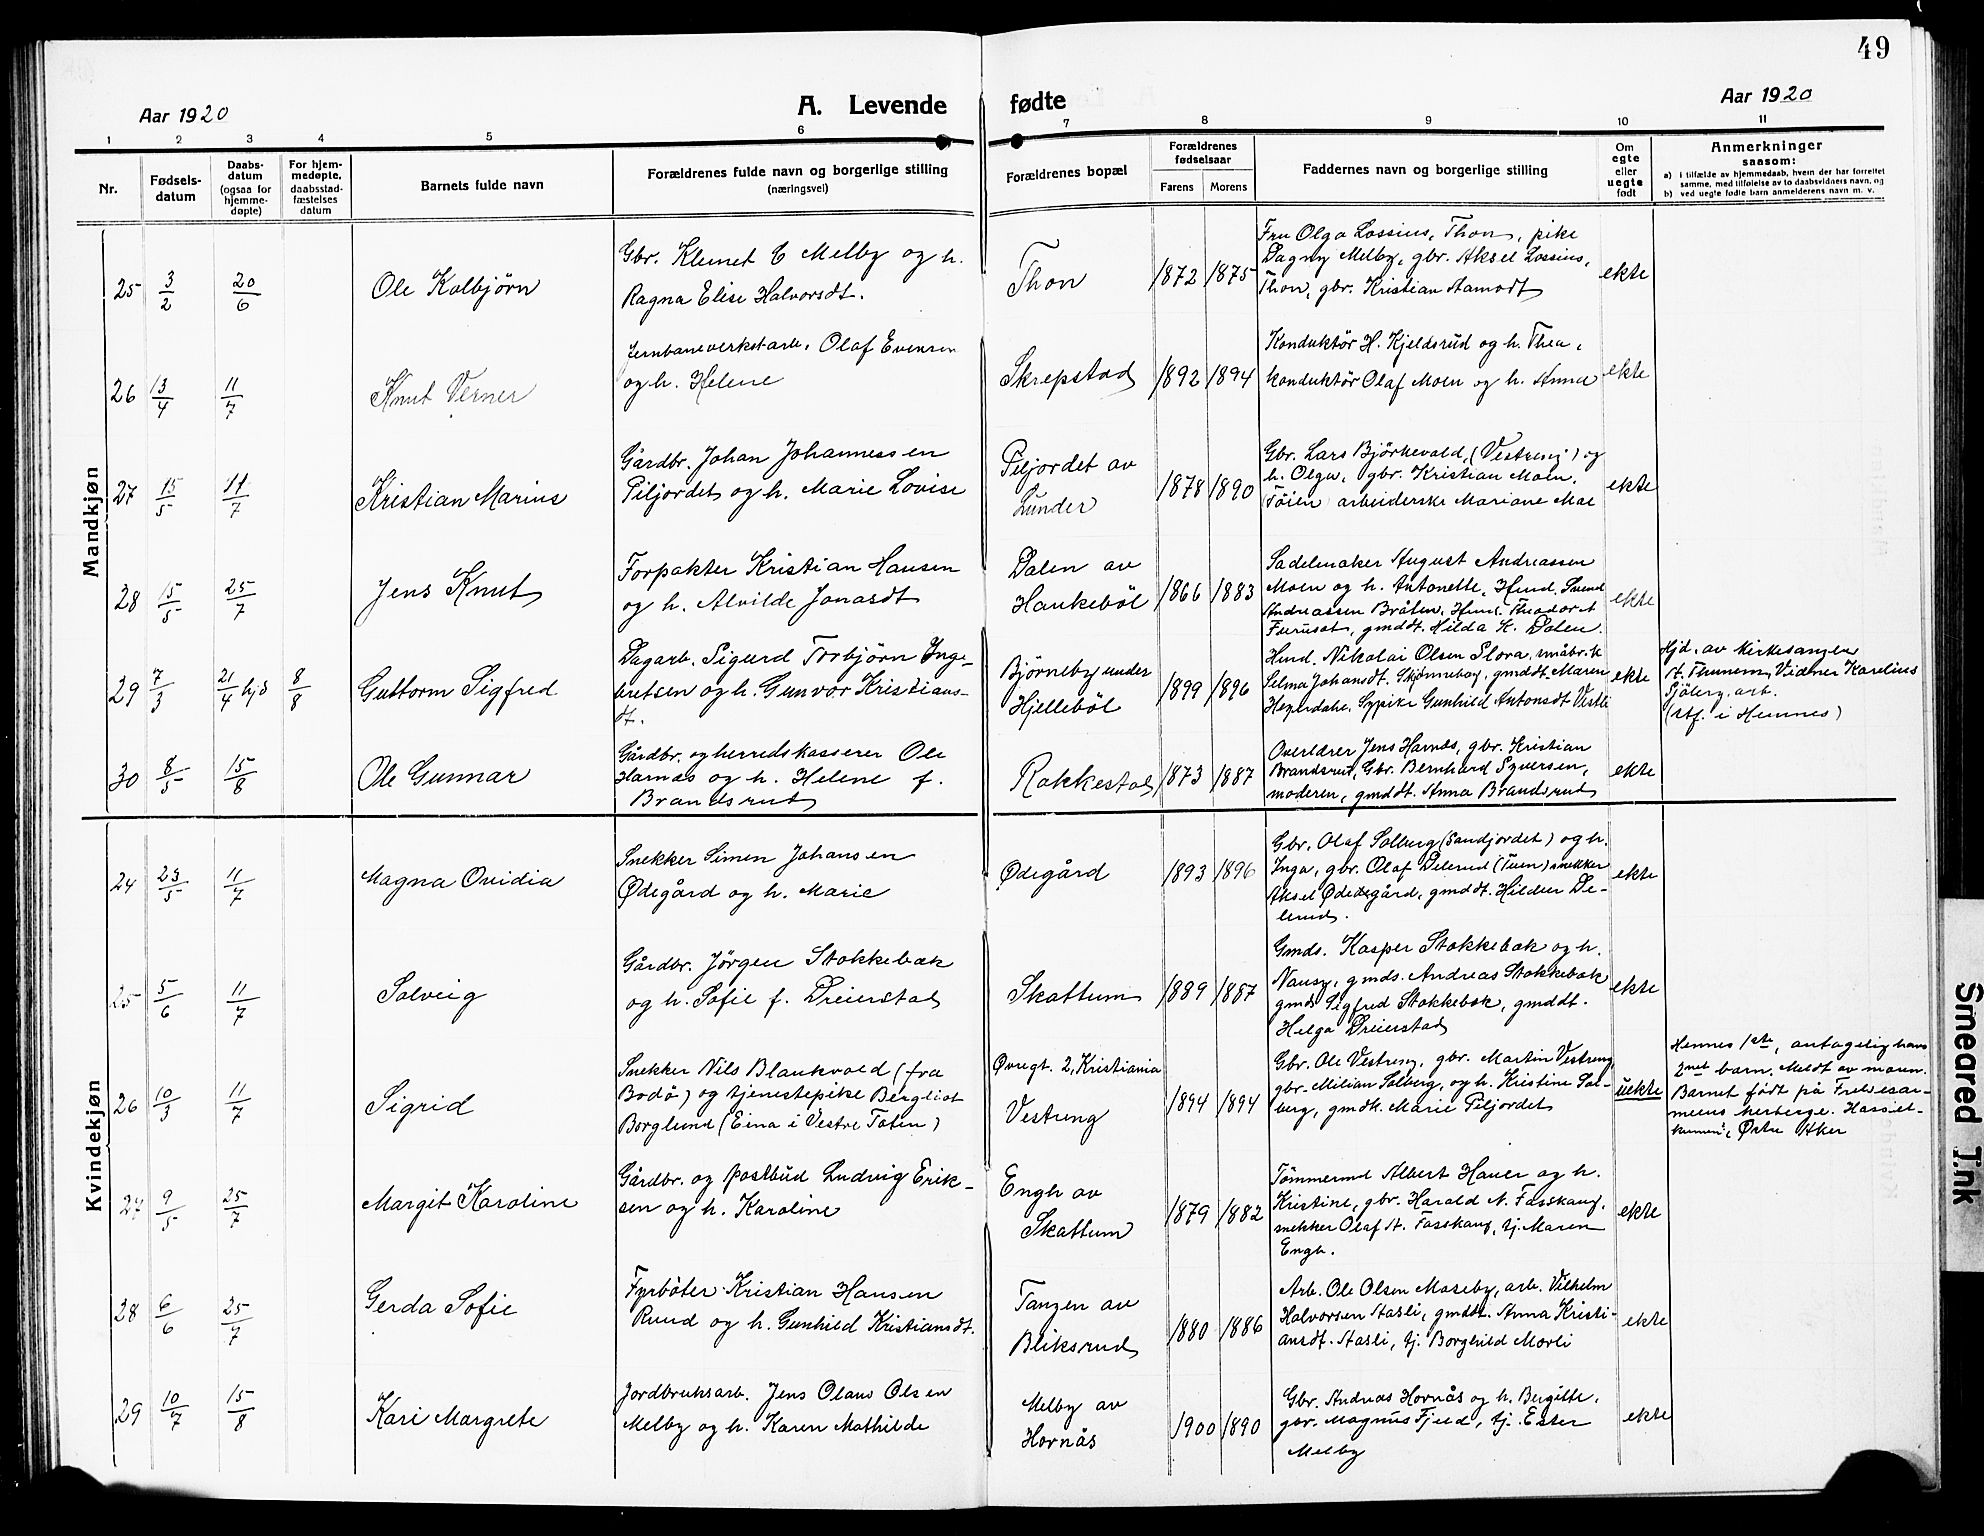 49
Aar 1920
A. Levende fødte
Aar 1920
1 2 3 4 5 6 7 8 9 10 11
Nr.
Fødsels-
datum
Daabs-
datum
(ogsaa for
hjemme-
døpte)
For hjem-
medøpte,
daabsstad-
fæstelses
datum
Barnets fulde navn
Forældrenes fulde navn og borgerlige stilling
(næringsvei)
Forældrenes bopæl
Forældrenes
fødselsaar
Farens Morens
Faddernes navn og borgerlige stilling
Om
egte
eller
uegte
født
Anmerkninger
saasom:
a) i tilfælde av hjemmedaab, hvem der har forrettet
samme, med tilføielse av to daabsvidners navn, og
b) ved uegte fødte barn anmelderens navn m. v.
Mandkjøn
25 3/2 20/6 Ole Kolbjörn
Gbr. Klemet C Melby og h.
Ragna Elise Halvorsdt.
Thon
1872 1875
Fru Olga Lossius, Thon, pike
Dagny Melby, gbr. Aksel Lossius,
Thon, gbr. Kristian Aamodt
ekte
26 13/4 11/7 Knut Verner
Jernbaneverkstarb. Olaf Evensen
og h. Helene
Skrepstad
1892 1894
Konduktör H. Kjeldsrud og h. Thea,
konduktör Olaf Moen og h. Anna
ekte
27 15/5 11/7 Kristian Marius
Gårdbr. Johan Johannessen
Piljordet og h. Marie Lovise
Piljordet av
Lunder
1878 1890
Gbr. Lars Björkevold, (Vestreng) og
h. Olga, gbr. Kristian Moen,
Töien arbeiderske Mariane Moe
ekte
28 15/5 25/7 Jens Knut
Forpakter Kristian Hansen
og h. Alvilde Jonasdt
Dalen av
Haukeböl
1866 1883
Sadelmaker August Andreassen
Moen og h. Antonette, Hmd. Svend
Andreassen Bråten, Hmd. Theodor A
Furuset, gmddt. Hilda K. Dalen.
ekte
29 7/3 21/4 hjd 8/8 Guttorm Sigfred
Dagarb. Sigurd Torbjörn Inge-
bretsen og h. Gunvor Kristians-
dt.
Björneby under
Hjelleböl
1899 1896
Hmd. Nikolai Olsen Flora, småbr.k
Selma Johansdt. Skjønnehaug, gmddt. Maren
Sypike Gunhild Antonsdt Vestli
ekte
Hjd. av kirkesanger
A. Thunem, Vidner Karelius
Sjöberg, arb.
(Stf. i Hemnes)
30 8/5 15/8 Ole Gunnar
Gårdbr. og herredskasserer Ole
Harnæs og h. Helene f.
Brandsrud
Rakkestad
1873 1887
Overlærer Jens Harnæs, gbr. Kristian
Brandsrud, Gbr. Bernhard Syversen,
moderen, gmddt. Anna Brandsrud
ekte
Kvindekjøn
24 23/5 11/7 Magna Ovidia
Snekker Simen Johansen
Ødegård og h. Marie
Ødegård
1893 1896
Gbr. Olaf Solberg (Sandjordet) og h.
Inga, gbr. Olaf Delerud (Tuen) snekker
Aksel Ødegård, gmddt. Hildur De-
lerud.
ekte
25 5/6 11/7 Solveig
Gårdbr. Jörgen Stokkebæk
og h. Sofie f. Dreierstad
Skattum
1889 1887
Gmds. Kasper Stokkebæk og h.
Nansy, gmds. Andreas Stokkebæk,
gmds Sigfred Stokkebæk, gmddt.
Helga Dreierstad
ekte
26 10/3 11/7 Sigrid
Snekker Nils Blankvold (fra
Bodö) og tjenestepike Bergliot
Borglund (Eina i Vestre Toten)
Øvregt. 2, Kristiania
Vestreng
1894 1894
Gbr. Ole Vestreng, gbr. Martin Vestreng,
gbr. Milian Solberg, og h. Kristine Sol-
berg, gmdk. Marie Piljordet
uekte
Hennes 1ste, antagelig hans
2net barn. Meldt av moren.
Barnet födt på Frelsesar-
meens herberge. Hassel-
Østre Aker
27 9/5 25/7 Margit Karoline
Gårdbr. og postbud Ludvig Erik-
sen og h. Karoline
Engh av
Skattum
1879 1882
Tömmermd Albert Hauer og h.
Kristine, gbr. Harald N. Fosskaug,
snekker Olaf A. Fosskaug, tj. Maren
Engh.
ekte
28 6/6 25/7 Gerda Sofie
Fyrböter Kristian Hansen
Ruud og h. Gunhild Kristiansdt.
Tangen av
Bliksrud
1880 1886
Arb. Ole Olsen Moseby, arb. Vilhelm
Halvorsen Aasli, gmddt. Anna Kristi-
ansdt. Aasli, tj. Borghild Morli
ekte
29 10/7 15/8 Kari Margrete
Jordbruksarb. Jens Olaus Olsen
Melby og h. Karen Mathilde
Melby av
Hornås
1900 1890
Gbr. Andreas Hornås og h. Bergitte,
gbr. Magnus Fjeld, tj. Ester
Melby
ekte
Smeared Ink